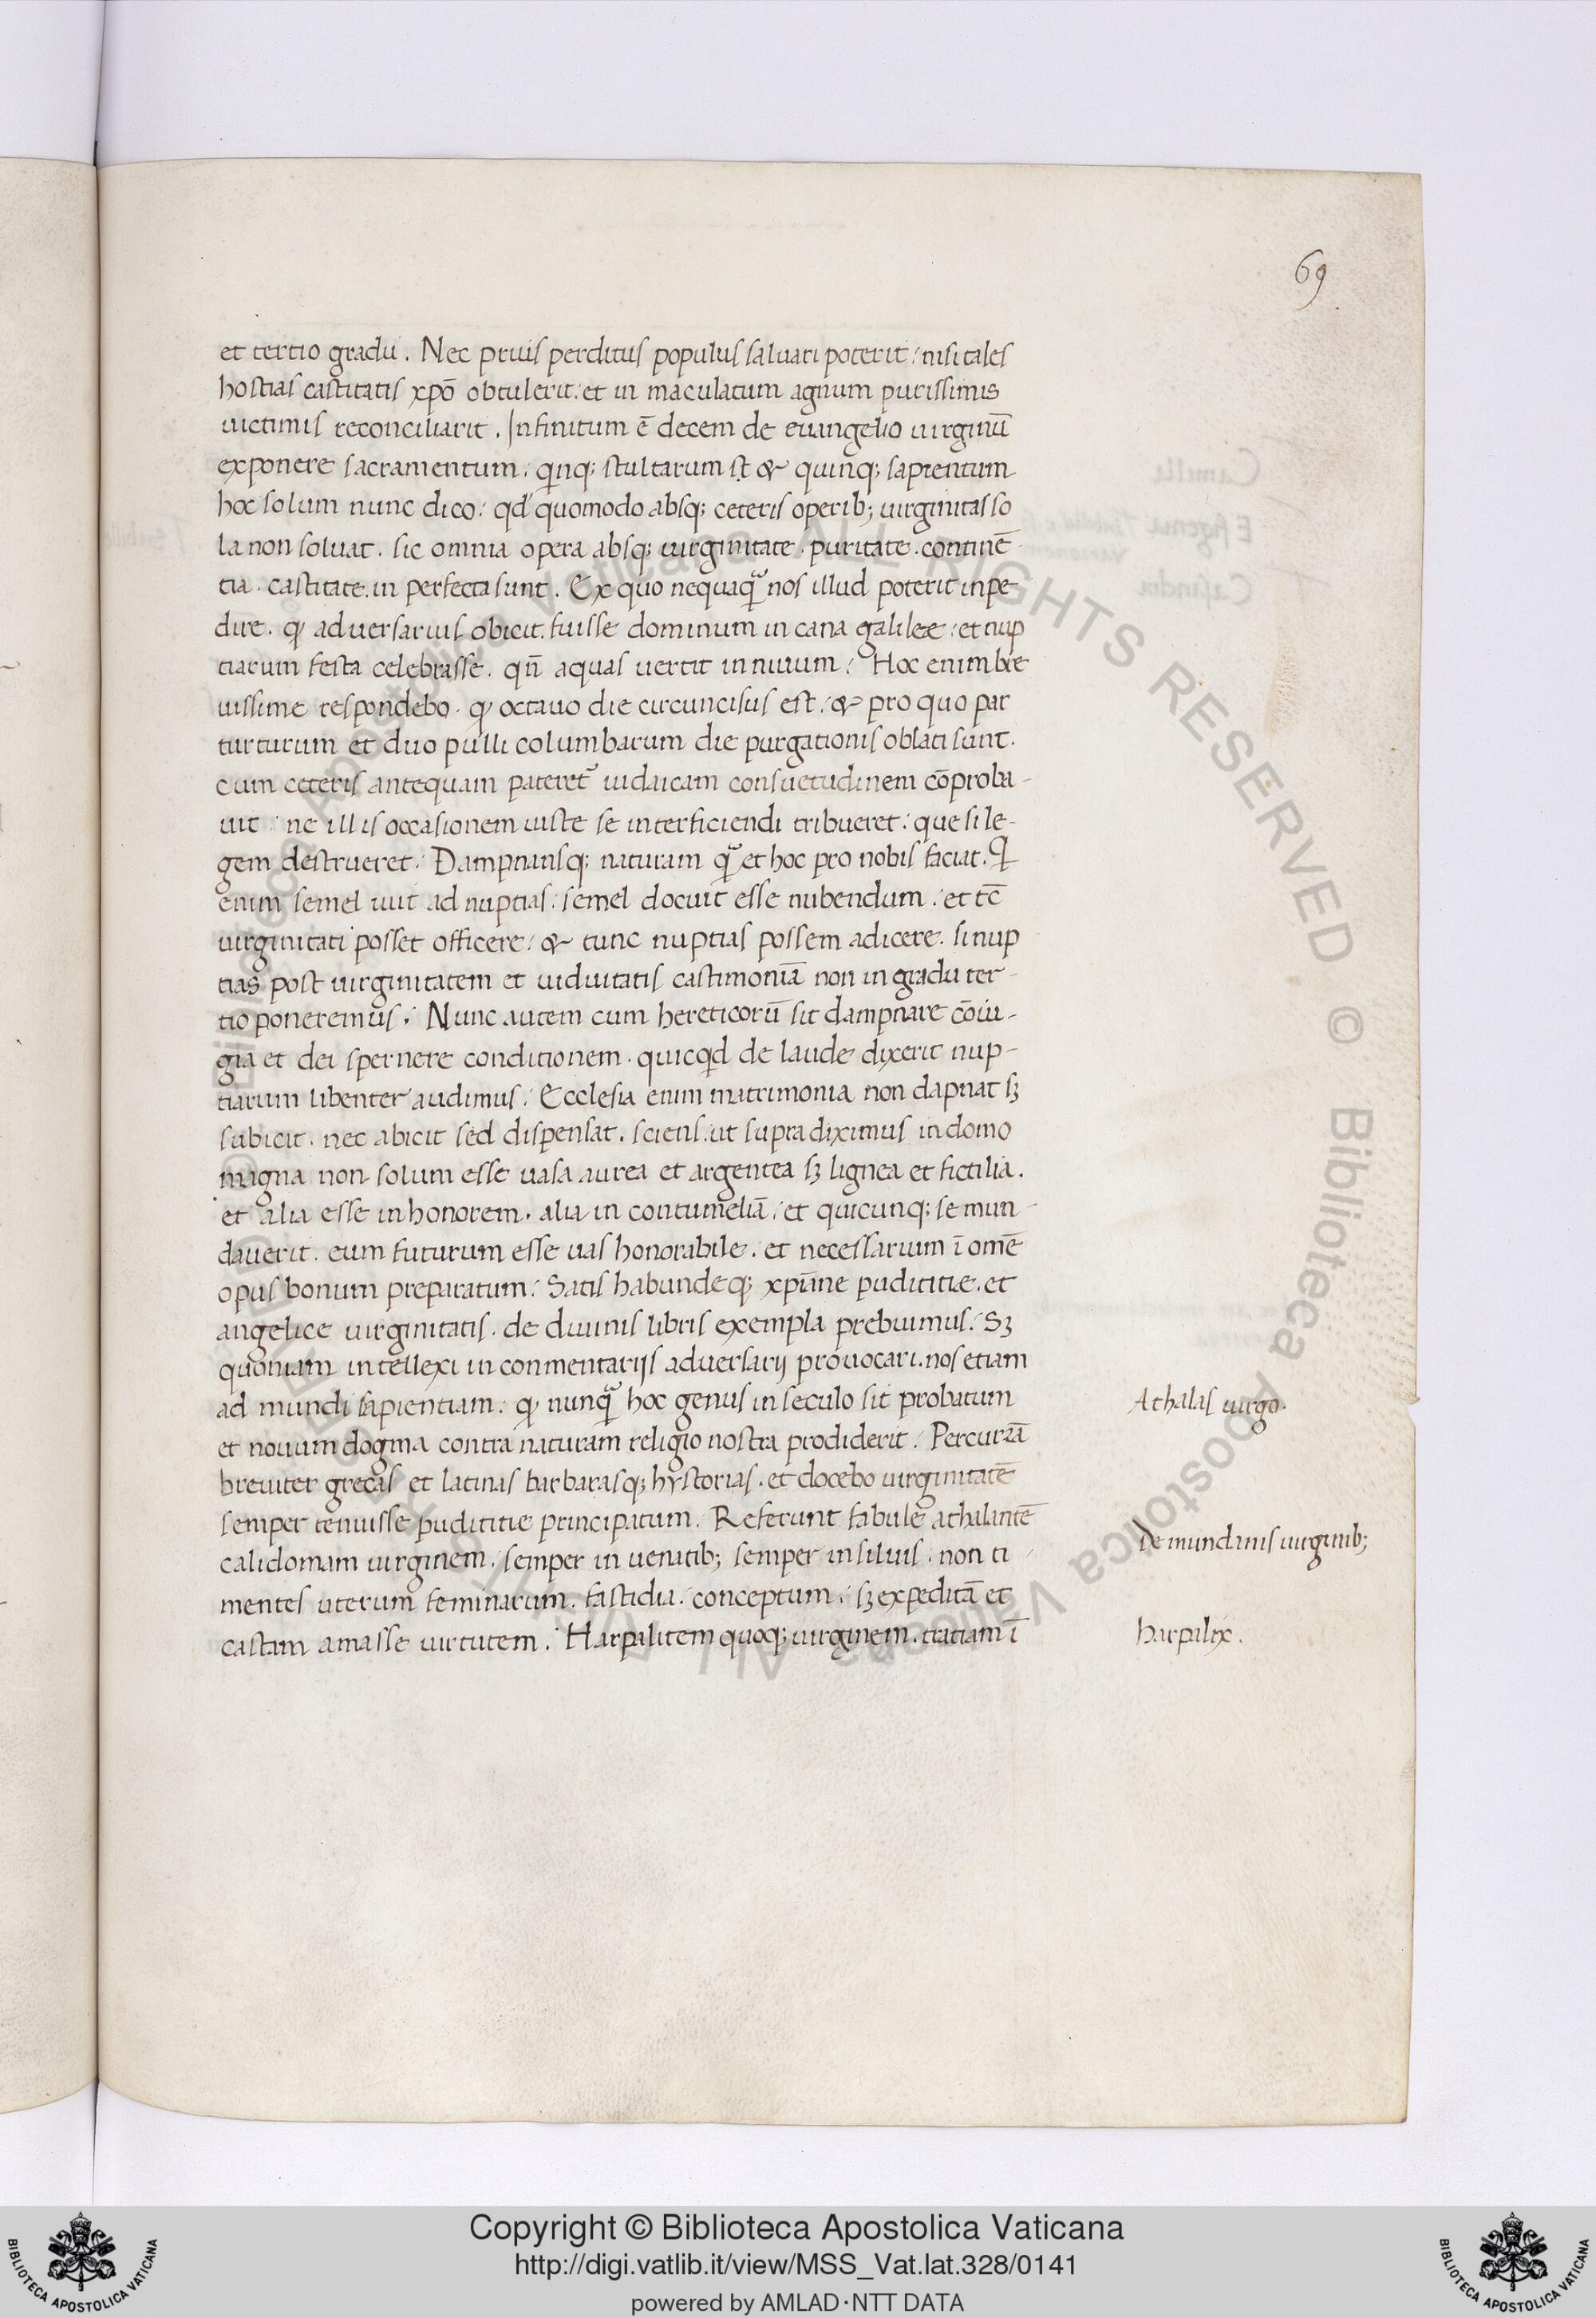 69
et tertio gradu. Nec prius perditus populus saluari poterit: nisi tales
hostias castitatis xpō obtulerit: et in maculatum agnum purissimis
uictimis reconciliarit. Infinitum ē decem de euangelio uirginū
exponere sacramentum: qnq; stultarum st & quinq; sapientum
hoc solum nunc dico: qd quomodo absq; ceteris operib; uirginitas so
la non soluat. sic omnia opera absq; uirginitate. puritate. continē-
tia. castitate. in perfecta sunt. Ex quo nequaq̃ nos illud poterit inpe
dire. q̃ aduersarius obicit. fuisse dominum in cana galilee: et nup
tiarum festa celebrasse. qñ aquas uertit in uinum: Hoc enim bre
uissime respondebo. q̃ octauo die circuncisus est: & pro quo par
turturum et duo pulli columbarum die purgationis oblati sunt.
cum ceteris antequam pateret̃ iudaicam consuetudinem cōproba-
uit: ne illis occasionem iuste se interficiendi tribueret: que si le-
gem destrueret: Dampnansq; naturam q̃ et hoc pro nobis faciat. Q̃
enim semel iuit ad nuptias: semel docuit esse nubendum: et tc̄
uirginitati posset officere: & tunc nuptias possem adicere. si nup
tias post uirginitatem et uiduitatis castimoniā non in gradu ter-
tio poneremus: Nunc autem cum hereticorū sit dampnare cōiu-
gia et dei spernere conditionem. quicqd de laude dixerit nup-
tiarum libenter audimus: Ecclesia enim matrimonia non dapnat sꝫ
subicit. nec abicit sed dispensat. sciens: ut supra diximus in domo
magna non solum esse uasa aurea et argentea sꝫ lignea et fictilia.
et alia esse in honorem. alia in contumeliā: et quicunq; se mun-
dauerit. eum futurum esse uas honorabile. et necessarium ī omē
opus bonum preparatum: Satis habundeq; xp̄iane pudititie. et
angelice uirginitatis. de diuinis libris exempla prebuimus: Sꝫ
quoniam intellexi in conmentarijs aduersarij prouocari. nos etiam
ad mundi sapientiam: q̃ nunq̃ hoc genus in seculo sit probatum
et nouum dogma contra naturam religio nostra prodiderit: Percurrā
breuiter grecas et latinas barbarasq; hystorias. et docebo uirginitatē
semper tenuisse pudititie principatum. Referunt fabule athalantē
calidomam uirginem. semper in uenatib; semper in siluis. non ti-
mentes uterum feminarum. fastidia. conceptum: sꝫ expeditā et
castam amasse uirtutem: Harpalitem quoq; uirginem. tratiam ī
Athalas uirgo.
De mundanis uirginib;
harpalix.
Copyright © Biblioteca Apostolica Vaticana
http://digi.vatlib.it/view/MSS_Vat.lat.328/0141
powered by AMLAD·NTT DATA